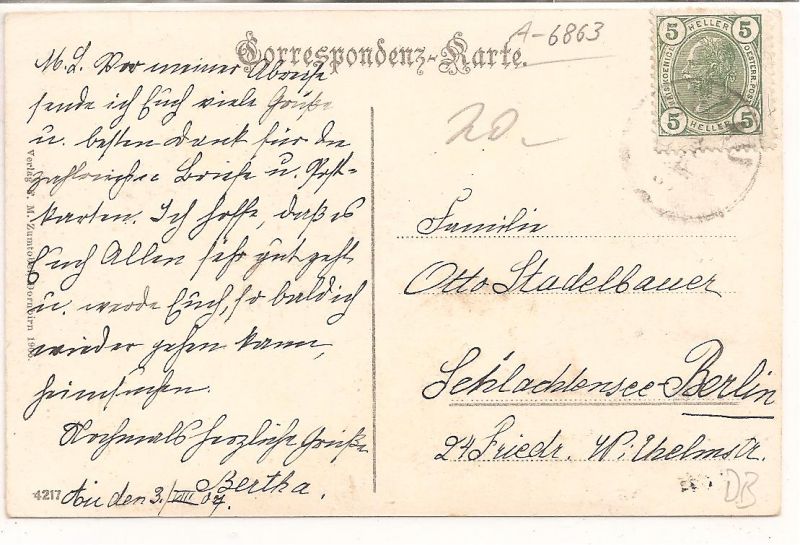 Correspondenz-Karte.
A-6863
20.-
M. L. Vor meiner Abreise
sende ich Euch viele Grüße
u. besten Dank für die
zahlreichen Briefe u. Post-
karten. Ich hoffe, daß es
Euch Allen sehr gut geht
u. werde Euch, so bald ich
wieder gehen kann,
heimsuchen.
Nochmals herzliche Grüße
Bertha.
Au den 3./VIII 07.
4217
Verlag v. M. Zumtobel, Dornbirn
5 HELLER 5
5 HELLER 5
Familie
Otto Stadelbauer
Schlachtensee-Berlin
24 Friedr. Wilhelmstr.
DB